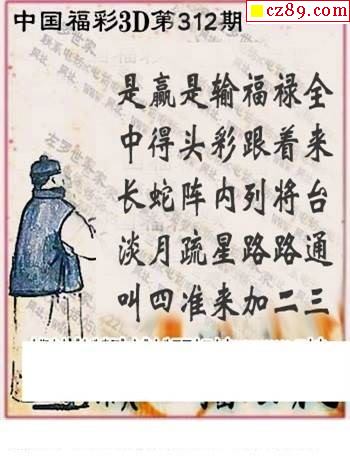 cz89.com
中国福彩3D第312期
是赢是输福禄全
中得头彩跟着来
长蛇阵内列将台
淡月疏星路路通
叫四准来加二三